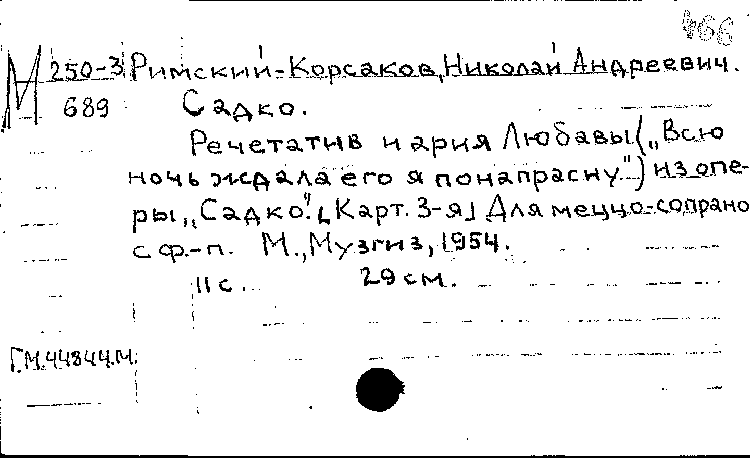 466
М 250-3 Римский-Корсаков, Николай Андреевич.
689 Садко.
Речетатив и ария Любавы („Всю
ночь ждала его я понапрасну") из опе-
ры „Садко". [Карт. 3-я] Для меццо-сопрано
с ф.-п. М., Музгиз, 1954.
11 с. 29 см.
Г.М.44844.М.